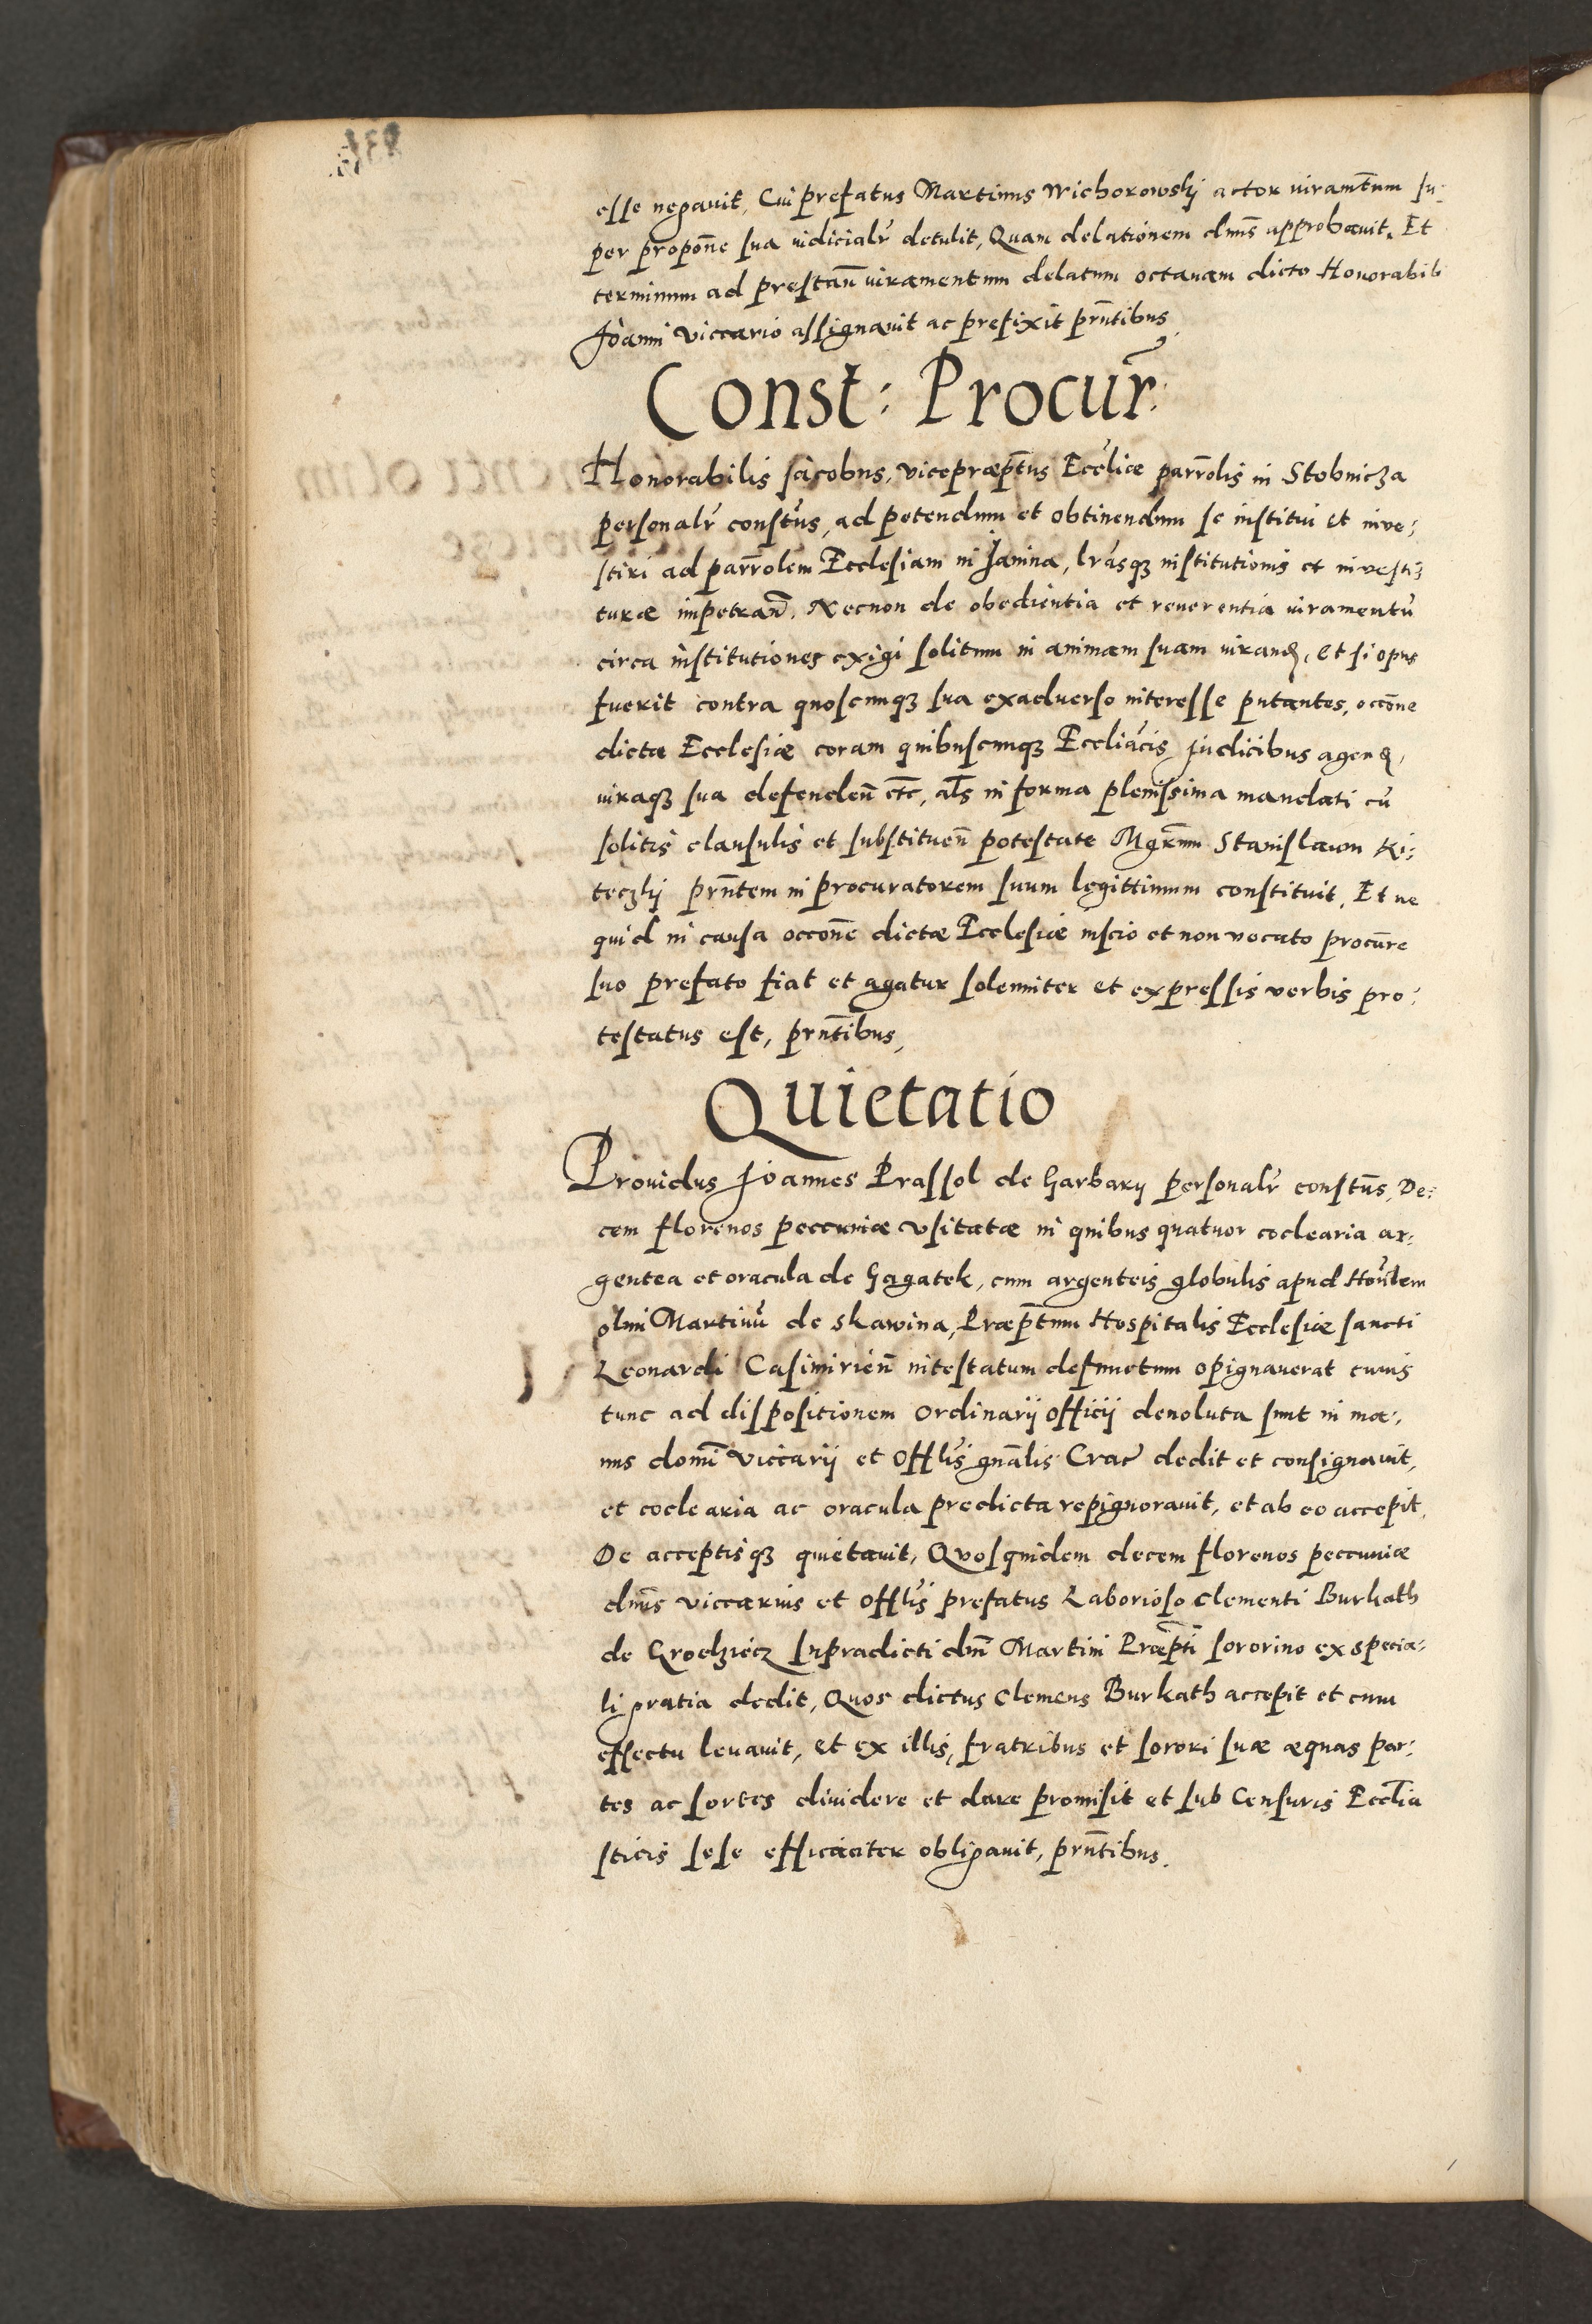 esse negauit, Cui prefatus Martinus Wichorowskj actor iuramētum su:
per propōne sua iudicialr detulit, Quam delationem dnus approbauit. Et
terminum ad prestan̄ iuramentum delatum octauam dicto Honorabili
Joanni viccario assignauit ac prefixit prn̄tibus
Const: Procur̄:
Honorabilis jacobus, viceprӕptus Ecclie parrolis in Stobnicza
personalr constus, ad petendum et obtinendum se institui et inve:
stiri ad parrolem Ecclesiam in Janina, lr̄asq3 institutionis et investi:
turæ impetran̄. Necnon de obedientia et reuerentia iuramentū
circa institutiones exigi solitum in animam suam iurand, et si opus
fuerit contra quoscumq3 sua exaduerso interesse putantes, occōne
dictæ Ecclesiæ coram quibuscumq3 Eccliacis judicibus agend,
iuraq3 sua defenden̄ etc, als in forma plenissima mandati cū
solitis clausulis et substituen̄ potestate Mgrum Stanislaum Ri:
teczkj prn̄tem in procuratorem suum legittimum constituit, Et ne
quid in causa occōne dictæ Ecclesiæ inscio et non vocato procūre
suo prefato fiat et agatur solemniter et expressis verbis pro:
testatus est, prn̄tibus,
Quietatio
Prouidus Joannes Prassol de Garbary personalr constus, De:
cem florenos peccuniæ vsitatæ in quibus quatuor coclearia ar:
gentea et oracula de Gagatek, cum argenteis globulis apud Hon̄lem
olim Martinū de Skawina, Præptum Hospitalis Ecclesiæ sancti
Leonardi Casimirien̄ intestatum defunctum opignauerat cuius
tunc ad dispositionem Ordinarij officij deuoluta sunt in ma:
nus domī viccarij et Offlis gnālis Crac̄ dedit et consignauit,
et coclearia ac oracula predicta repignorauit, et ab eo accepit.
De acceptisq3 quietauit, Quosquidem decem florenos peccuniæ
dnus viccarius et Offlis prefatus Laborioso Clementi Burkath
de Grodziecz supradicti dnī Martini Præpti sororino ex specia:
li gratia dedit, Quos dictus Clemens Burkath accepit et cum
effectu leuauit, et ex illis, fratribus et sorori suæ æquas par:
tes ac sortes diuidere et dare promisit et sub Censuris Ecclia
sticis sese efficaciter obligauit, prn̄tibus.